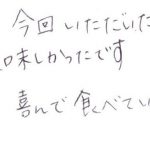 今回 いただいた
味しかったです
喜んで 食べてい